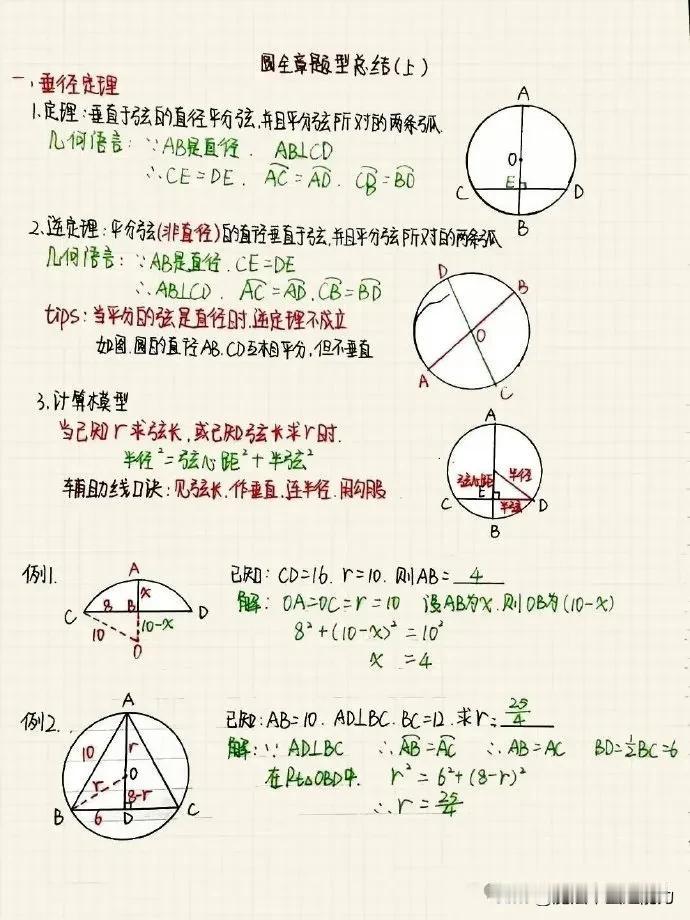 圆全章题型总结(上)
一、垂径定理
1.定理：垂直于弦的直径平分弦，并且平分弦所对的两条弧.
几何语言：∵AB是直径. AB⊥CD
∴CE=DE. A͡C=A͡D. C͡B=B͡D
A
O
C E D
B
2.逆定理：平分弦(非直径)的直径垂直于弦，并且平分弦所对的两条弧
几何语言：∵AB是直径.CE=DE
∴AB⊥CD. A͡C=A͡D. C͡B=B͡D
tips：当平分的弦是直径时.逆定理不成立
如图.圆的直径AB.CD互相平分，但不垂直
D B
O
A C
3.计算模型
当已知r求弦长，或已知弦长求r时.
半径²=弦心距²+半弦²
辅助线口诀：见弦长，作垂直，连半径，用勾股
A
弦心距 半径
C E D
半弦
B
例1.
A
x
C 8 B D
10 10-x
O
已知：CD=16. r=10. 则AB=4
解：OA=OC=r=10 设AB为x.则OB为(10-x)
8²+(10-x)²=10²
x =4
例2.
A
10 r
r O
8-r
B 6 D C
已知：AB=10. AD⊥BC. BC=12. 求r=25/4
解：∵AD⊥BC ∴A͡B=A͡C ∴AB=AC BD=½BC=6
在Rt△OBD中. r²=6²+(8-r)²
∴r=25/4